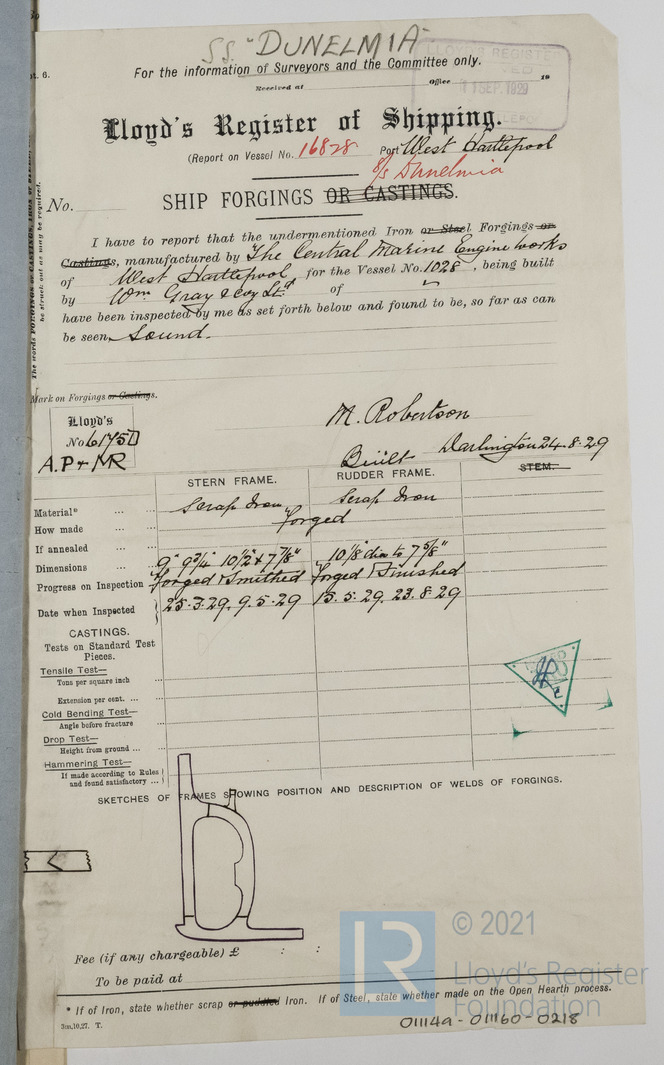 S.S. "DUNELMIA"
t. 6.
For the information of Surveyors and the Committee only.
Received at Office 19
LLOYD'S REGISTER
11 SEP. 1929
Lloyd's Register of Shipping.
(Report on Vessel No. 16828 Port West Hartlepool
S/S Dunelmia
No.
SHIP FORGINGS OR CASTINGS.
I have to report that the undermentioned Iron or Steel Forgings or
Castings, manufactured by The Central Marine Engine works
of West Hartlepool for the Vessel No. 1028, being built
by Wm Gray & Coy Ltd of
have been inspected by me as set forth below and found to be, so far as can
be seen, Sound.
be struck out as may be required.
Mark on Forgings or Castings.
Lloyd's
No 6175D
A.P + MR
M. Robertson
Built Darlington 24.8.29
STERN FRAME. RUDDER FRAME. STEM.
Material* Scrap Iron Scrap Iron
How made forged
If annealed
Dimensions 9" 9 3/4" 10 1/2" x 7 7/8" 10 1/8" dia to 7 5/8"
Progress on Inspection forged & Smithed forged & finished
Date when Inspected 25.3.29, 9.5.29 15.5.29, 23.8.29
CASTINGS.
Tests on Standard Test
Pieces.
Tensile Test—
Tons per square inch
Extension per cent.
Cold Bending Test—
Angle before fracture
Drop Test—
Height from ground
Hammering Test—
If made according to Rules
and found satisfactory
SKETCHES OF FRAMES SHOWING POSITION AND DESCRIPTION OF WELDS OF FORGINGS.
Fee (if any chargeable) £ : :
To be paid at
* If of Iron, state whether scrap or puddled Iron. If of Steel, state whether made on the Open Hearth process.
3m,10,27. T.
011149-011160-0218
LR
© 2021
Lloyd's Register
Foundation